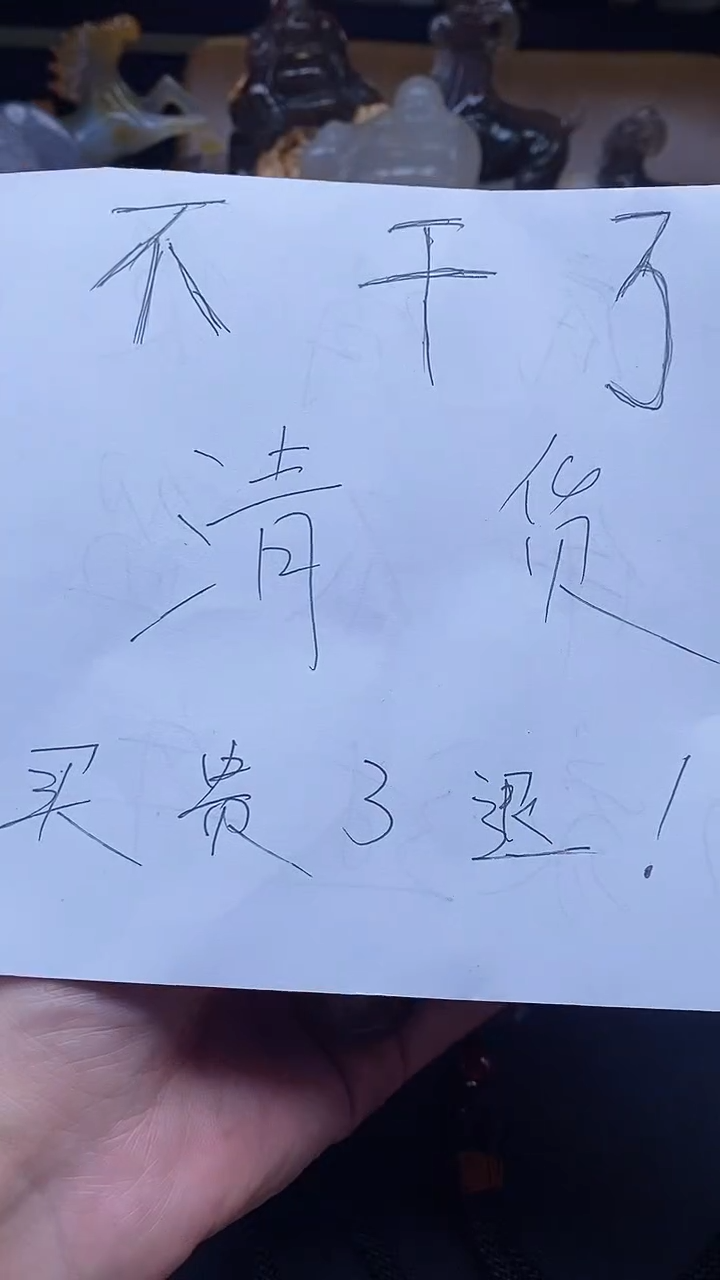 不干了
清货
买贵3退！